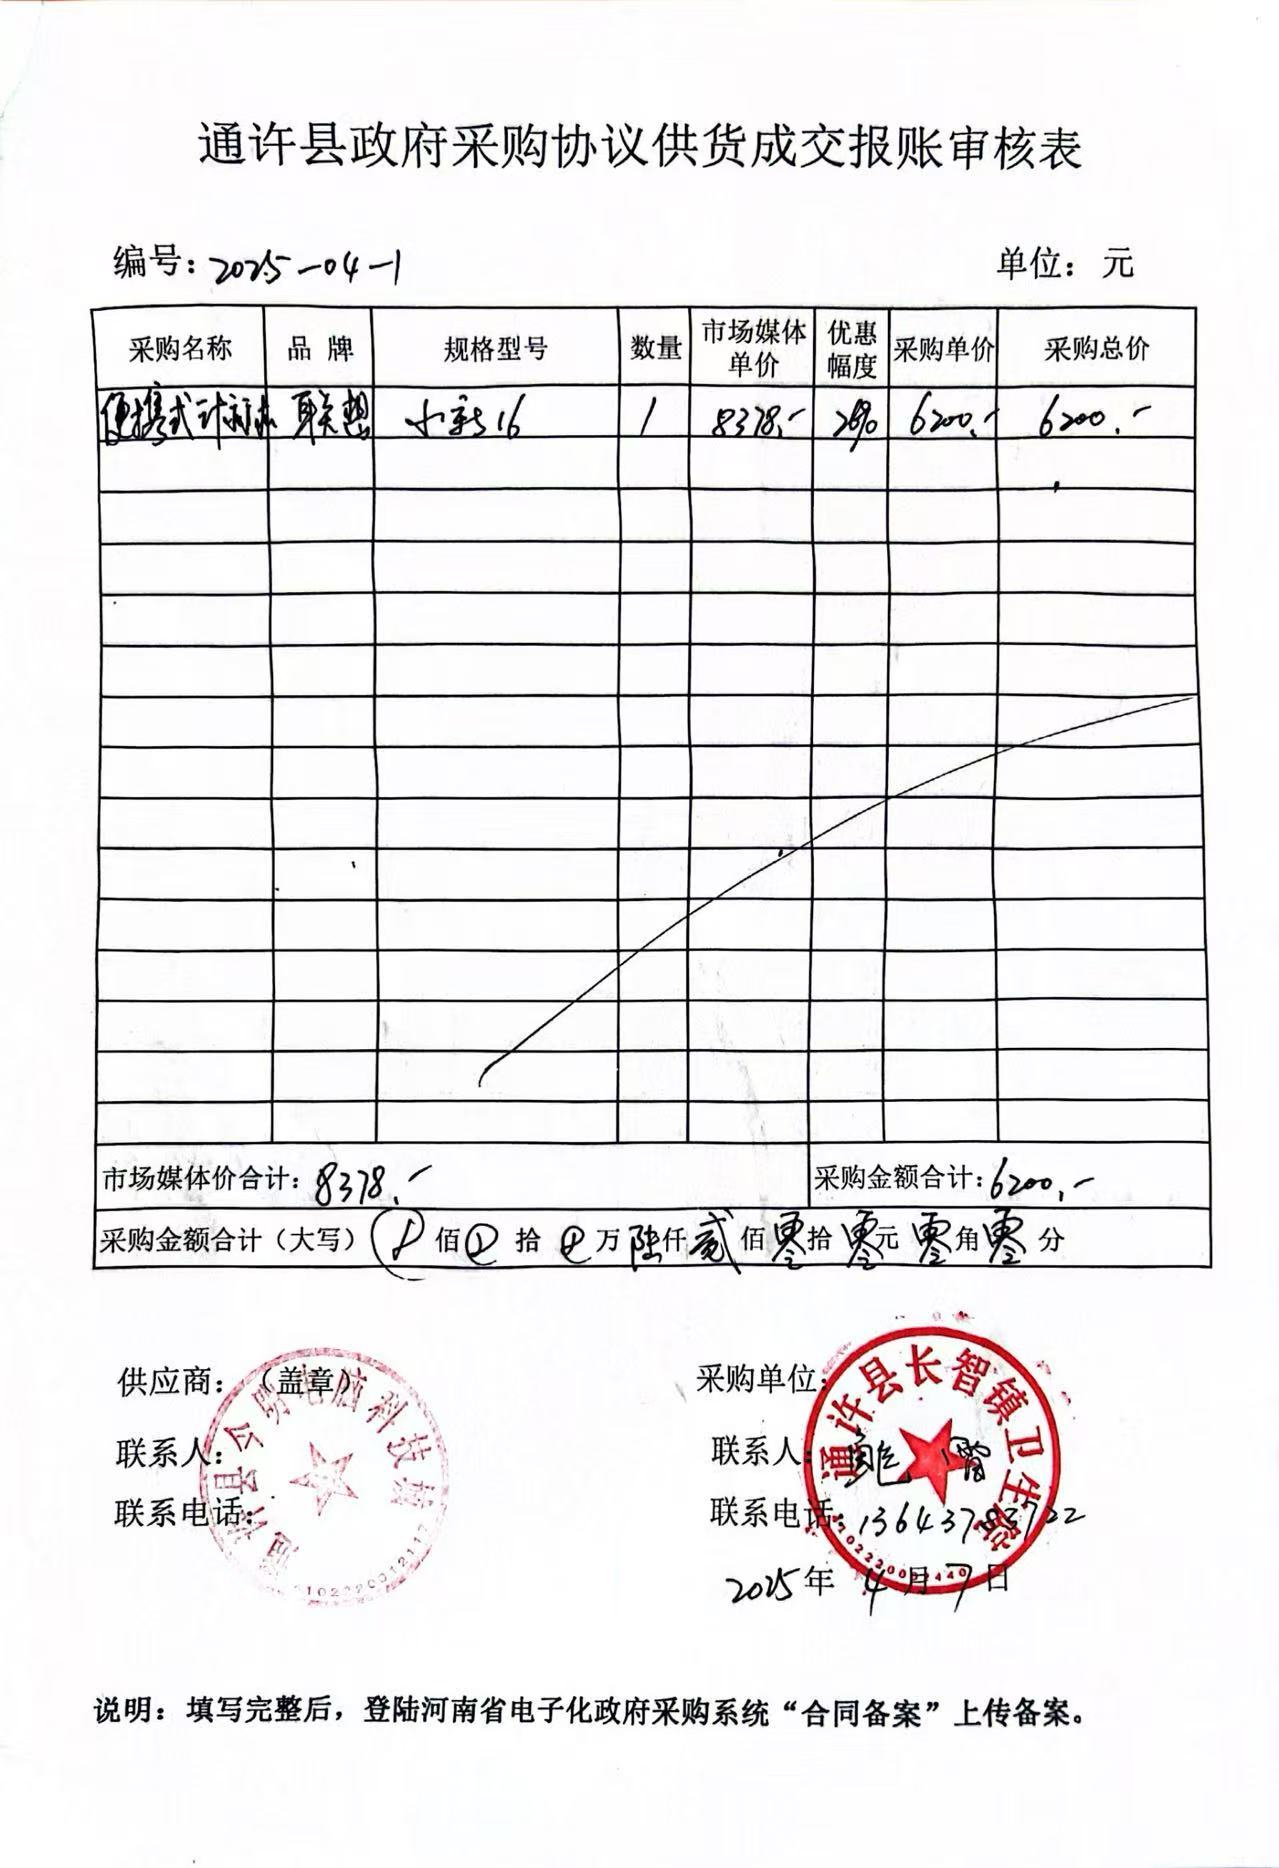 通许县政府采购协议供货成交报账审核表
编号：2025-04-1 单位：元
采购名称 品牌 规格型号 数量 市场媒体单价 优惠幅度 采购单价 采购总价
便携式计算机 联想 小新16 1 8378.- 26% 6200.- 6200.-
市场媒体价合计：8378.- 采购金额合计：6200.-
采购金额合计（大写） 佰 拾 万 陆仟 贰佰 零拾 零元 零角 零分
供应商：（盖章） 采购单位：
联系人： 联系人：
联系电话： 联系电话：13643783722
2025年4月7日
通许县 电脑科技
通许县长智镇卫生院
说明：填写完整后，登陆河南省电子化政府采购系统“合同备案”上传备案。